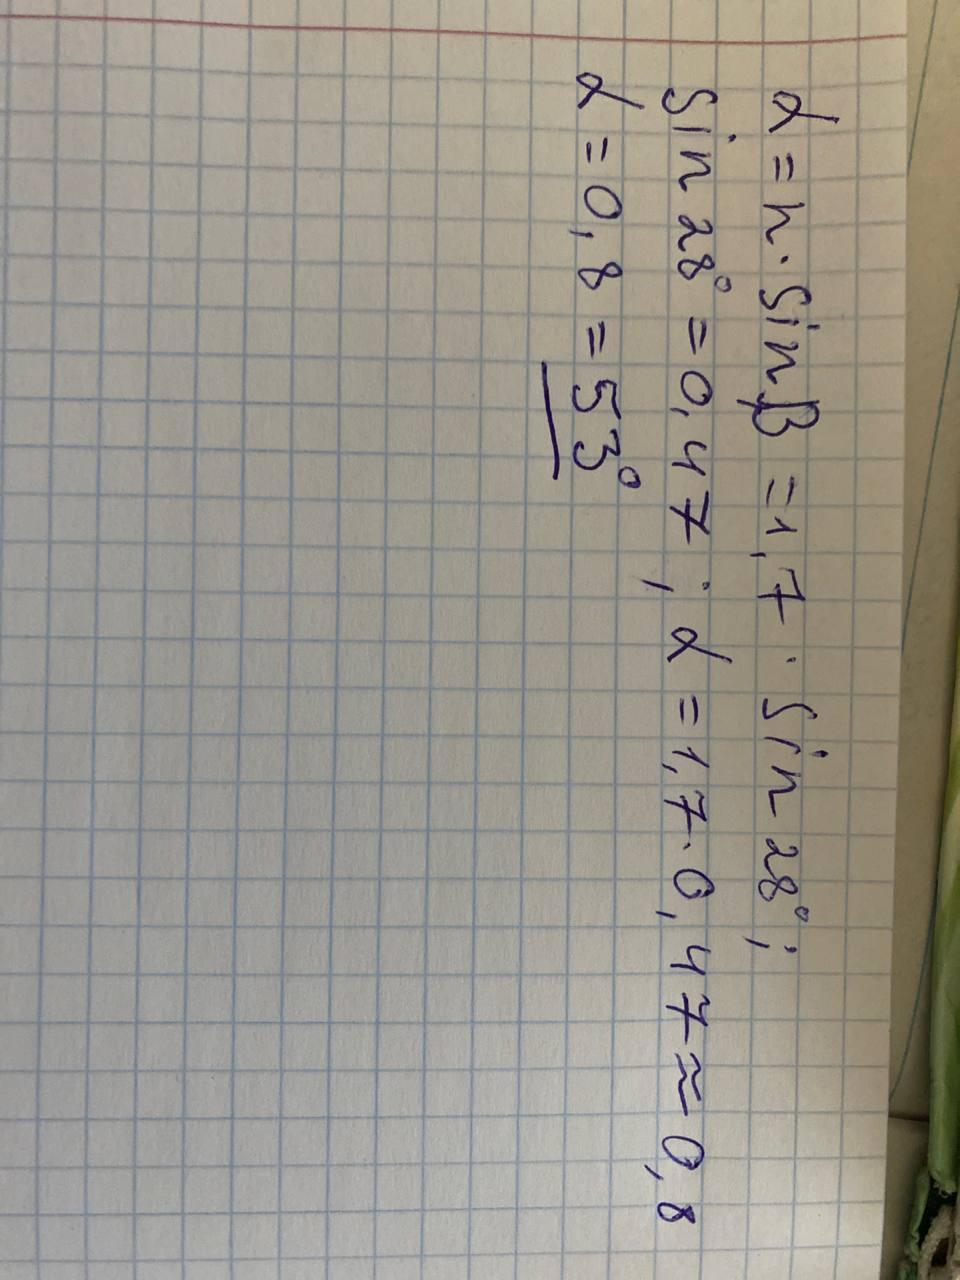 α = n · sin β = 1,7 · sin 28°;
sin 28° = 0,47 ; α = 1,7 · 0,47 ≈ 0,8
α = 0,8 = 53°